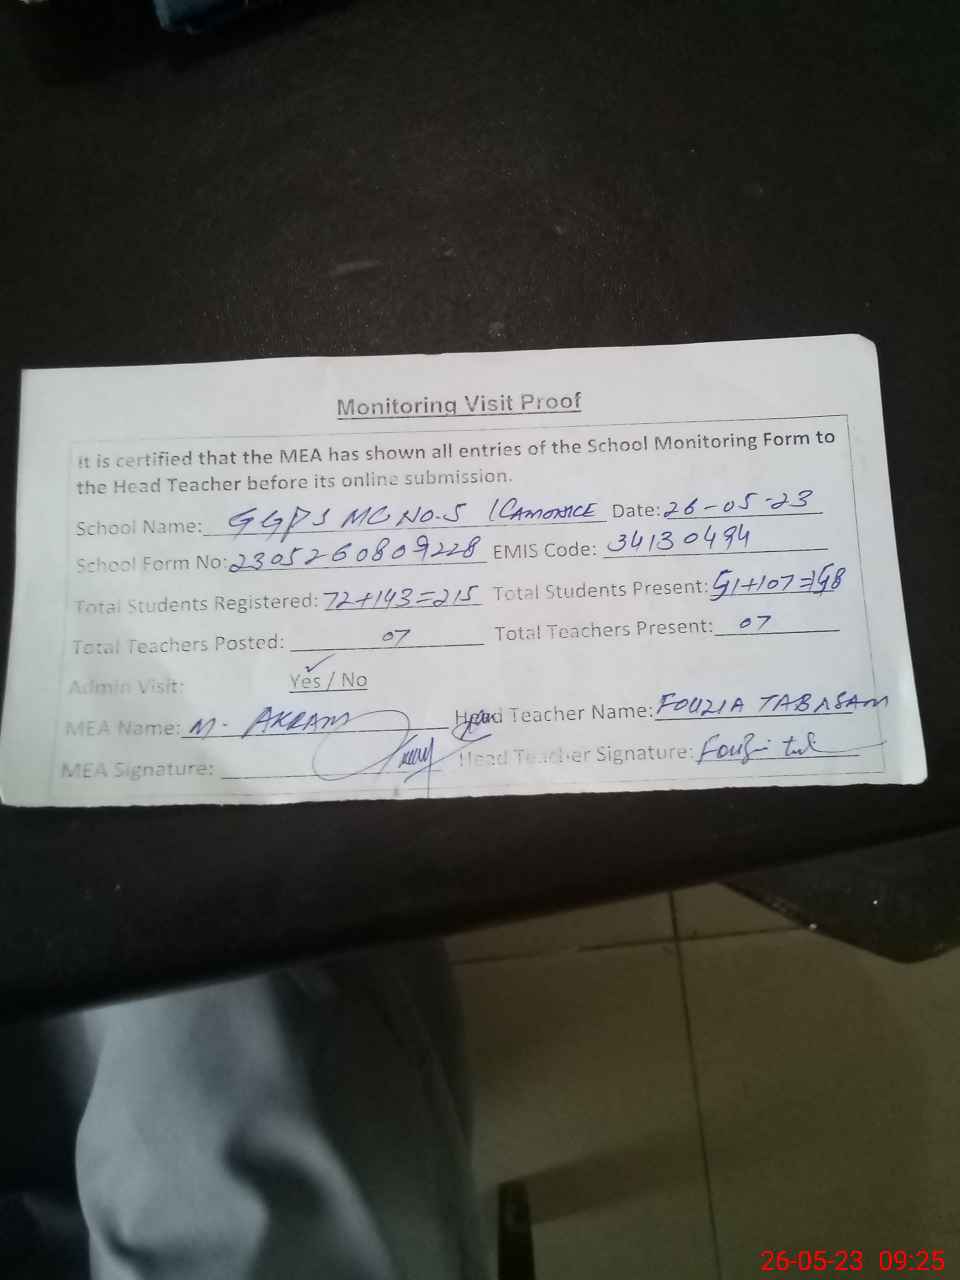 Monitoring Visit Proof
It is certified that the MEA has shown all entries of the School Monitoring Form to
the Head Teacher before its online submission.
School Name: GGPS MC NO.5 Date: 26-05-23
School Form No: 2305260809228 EMIS Code: 34130494
Total Students Registered: 72+143=215 Total Students Present: 51+107=158
Total Teachers Posted: 07 Total Teachers Present: 07
Admin Visit: Yes / No
MEA Name: M. AKRAM Head Teacher Name: FOUZIA TABASAM
MEA Signature: Head Teacher Signature:
26-05-23 09:25